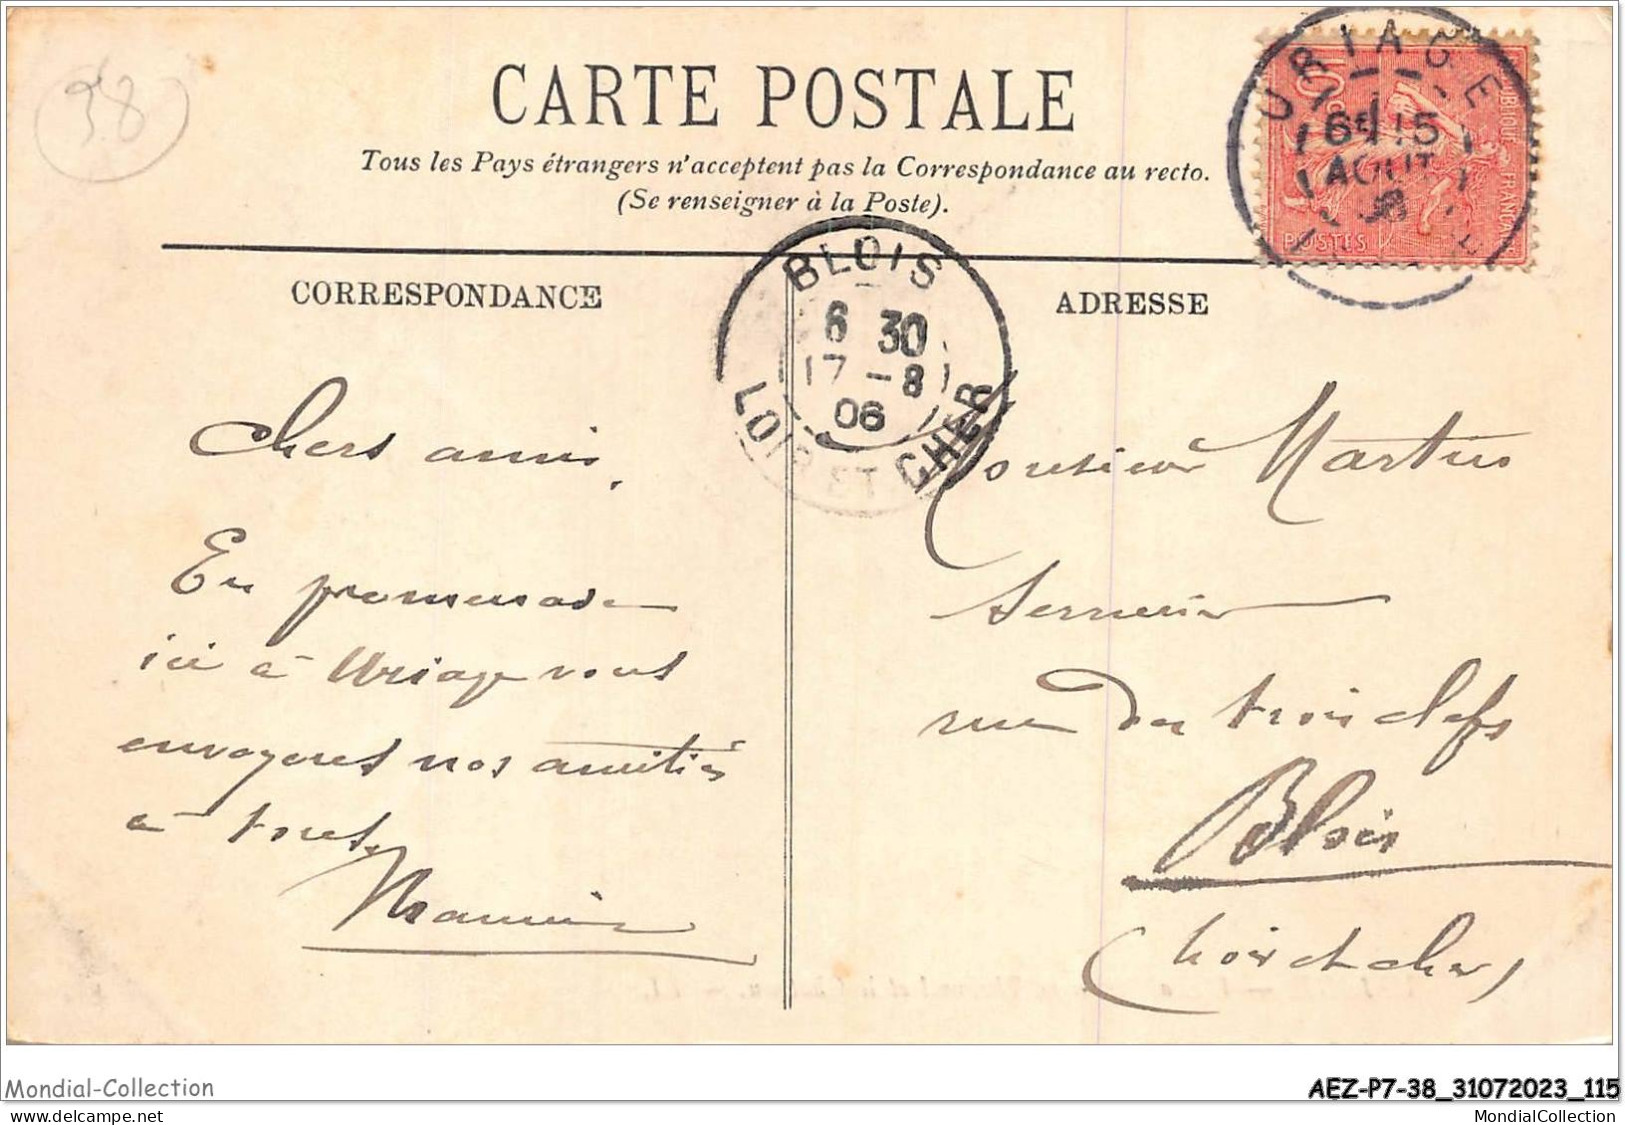 38
CARTE POSTALE
Tous les Pays étrangers n'acceptent pas la Correspondance au recto.
(Se renseigner à la Poste).
URIAGE
6E 15
AOUT
POSTES
CORRESPONDANCE
BLOIS
6 30
17 -8
06
LOIR ET CHER
ADRESSE
Chers amis,
En promenade
ici à Uriage vous
envoyons nos amitiés
à tous,
Monsieur Martin
Serrurier
rue des trois clefs
Blois
(Loir et cher)
Mondial-Collection
AEZ-P7-38_31072023_115
www.delcampe.net
MondialCollection